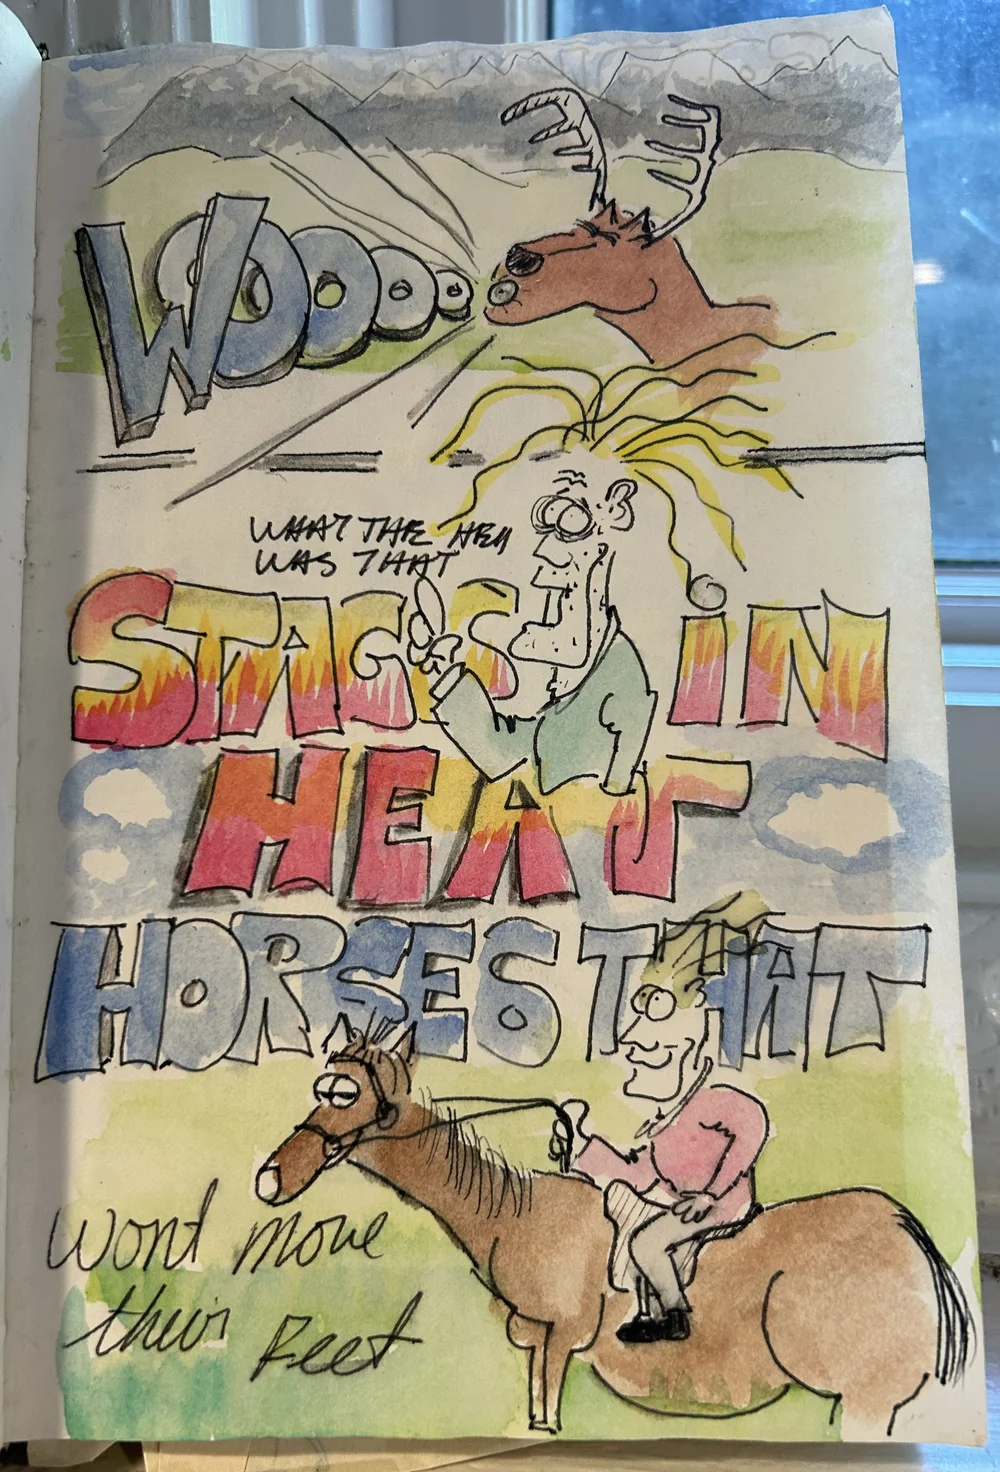 WOOOOO
WHAT THE HELL
WAS THAT
STAGS IN
HEAT
HORSES THAT
Wont move
their Feet